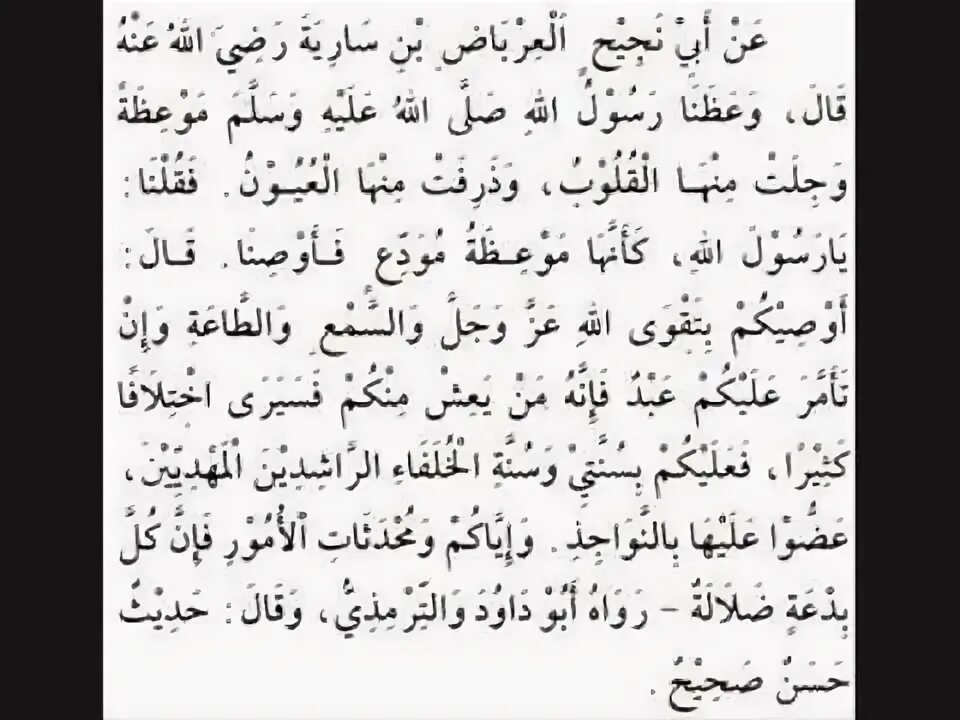 عَنْ أَبِيْ نَجِيْحٍ الْعِرْبَاضِ بْنِ سَارِيَةَ رَضِيَ اللهُ عَنْهُ
قَالَ، وَعَظَنَا رَسُوْلُ اللهِ صَلَّى اللهُ عَلَيْهِ وَسَلَّمَ مَوْعِظَةً
وَجِلَتْ مِنْهَا الْقُلُوْبُ، وَذَرِفَتْ مِنْهَا الْعُيُوْنُ. فَقُلْنَا:
يَارَسُوْلَ اللهِ، كَأَنَّهَا مَوْعِظَةُ مُوَدِّعٍ فَأَوْصِنَا. قَالَ:
أُوْصِيْكُمْ بِتَقْوَى اللهِ عَزَّ وَجَلَّ وَالسَّمْعِ وَالطَّاعَةِ وَإِنْ
تَأَمَّرَ عَلَيْكُمْ عَبْدٌ فَإِنَّهُ مَنْ يَعِشْ مِنْكُمْ فَسَيَرَى اخْتِلَافًا
كَثِيْرًا، فَعَلَيْكُمْ بِسُنَّتِيْ وَسُنَّةِ الْخُلَفَاءِ الرَّاشِدِيْنَ الْمَهْدِيِّيْنَ،
عَضُّوْا عَلَيْهَا بِالنَّوَاجِذِ. وَإِيَّاكُمْ وَمُحْدَثَاتِ الْأُمُوْرِ فَإِنَّ كُلَّ
بِدْعَةٍ ضَلَالَةٌ – رَوَاهُ أَبُوْ دَاوُدَ وَالتِّرْمِذِيُّ، وَقَالَ: حَدِيْثٌ
حَسَنٌ صَحِيْحٌ.